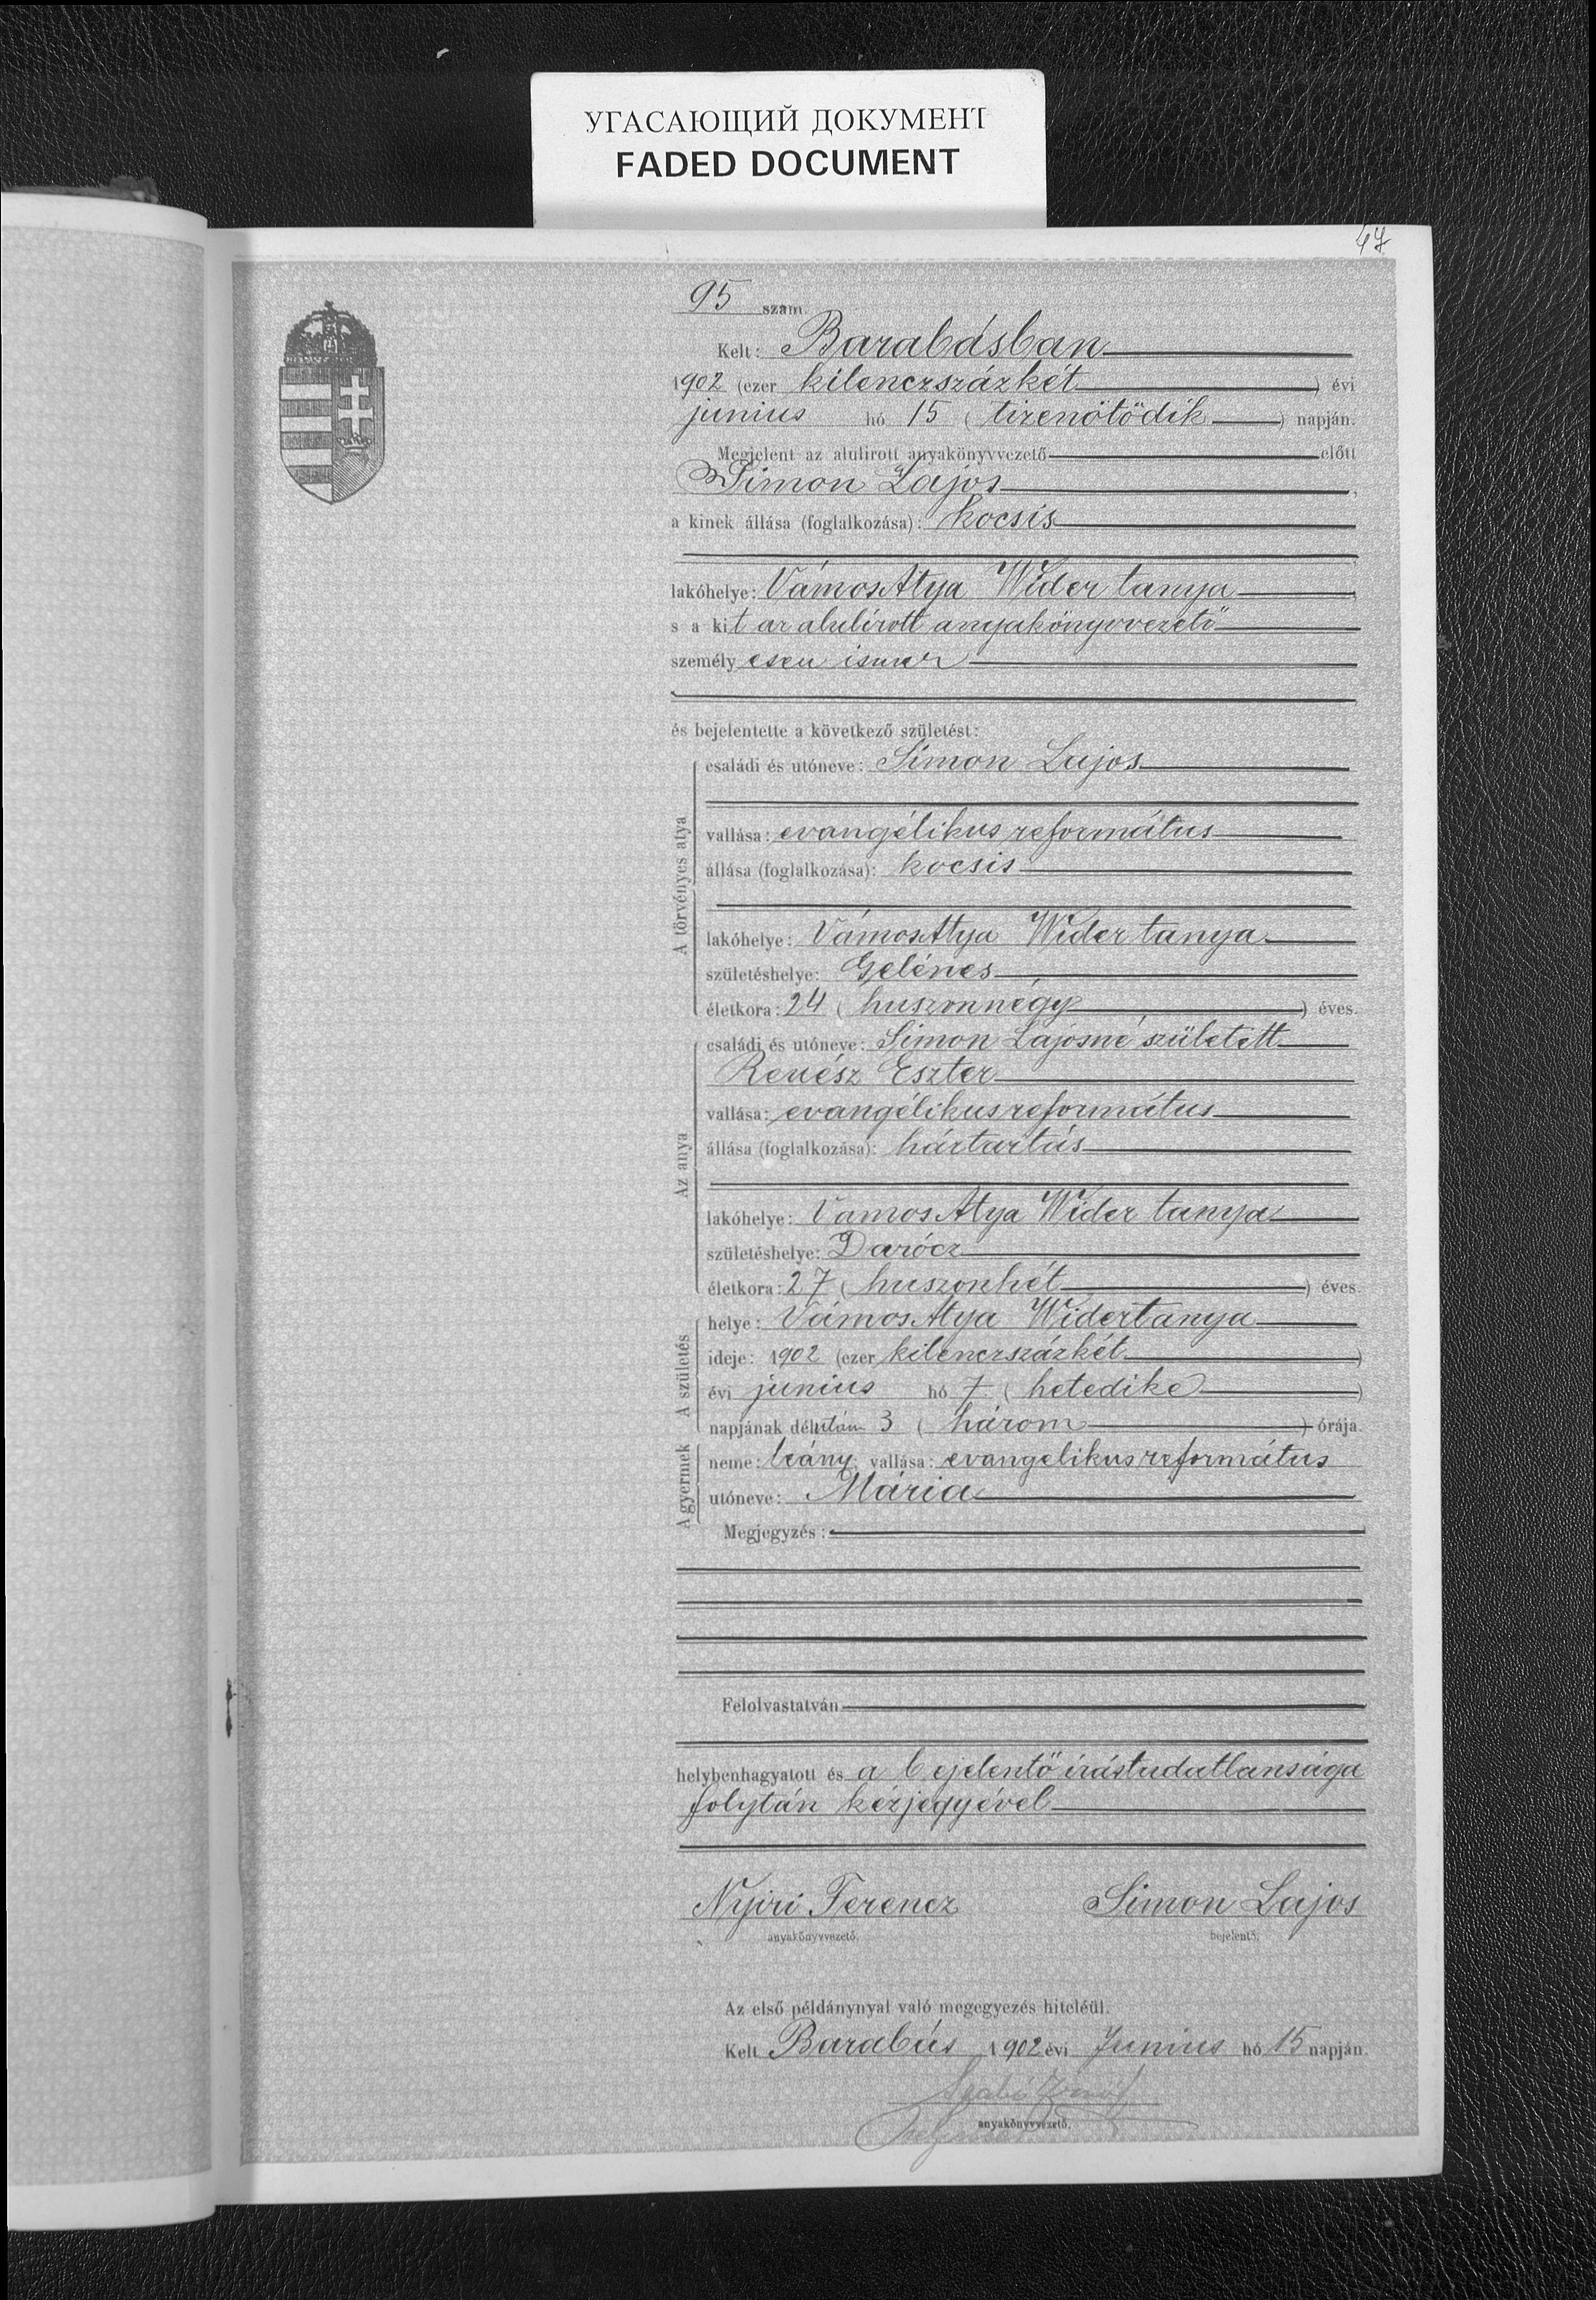 УГАСАЮЩИЙ ДОКУМЕНТ
FADED DOCUMENT
47
95 szám.
Kelt: Barabásban
1902 (ezer kilenczszázkét) évi
junius hó 15 (tizenötödik) napján.
Megjelent az alulirott anyakönyvvezető előtt
Simon Lajos,
a kinek állása (foglalkozása): kocsis
lakóhelye: VámosAtya Wider tanya,
s a kit az alulírott anyakönyvvezető
személyesen ismer
és bejelentette a következő születést:
A törvényes atya
családi és utóneve: Simon Lajos
vallása: evangélikus református
állása (foglalkozása): kocsis
lakóhelye: VámosAtya Wider tanya
születéshelye: Gelénes
életkora: 24 (huszonnégy) éves.
Az anya
családi és utóneve: Simon Lajosné született
Eszter
vallása: evangélikus református
állása (foglalkozása): háztartás
lakóhelye: VamosAtya Wider tanya
születéshelye: Darócz
életkora: 27 (huszonhét) éves.
A születés
helye: VámosAtya Widertanya
ideje: 1902 (ezer kilenczszázkét)
évi junius hó 7 (hetedike)
napjának délután 3 (három) órája.
A gyermek
neme: leány; vallása: evangelikus református
utóneve: Mária
Megjegyzés:
Felolvastatván
helybenhagyatott és a bejelentő írástudatlansága
folytán kézjegyével
Nyiri Ferencz Simon Lajos
anyakönyvvezető. bejelentő.
Az első példánynyal való megegyezés hiteléül.
Kelt Barabás 1902 évi Junius hó 15 napján.
Szabó
anyakönyvvezető.